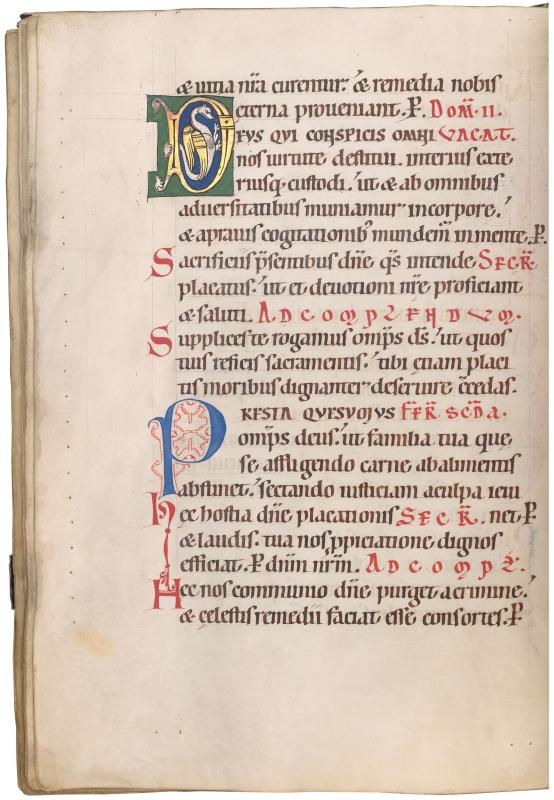 & uitia nr̄a curentur. & remedia nobis
eterna proueniant. P. Dom̄. II.
DEUS QUI CONSPICIS OMNI VACAT.
nos uirtute destitui. interius exte
riusq. custodi. ut & ab omnibus
aduersitatibus muniamur in corpore.
& aprauis cogitationib' mundem̄ in mente. P.
Sacrificiis p̄sentibus dn̄e q̄s intende SECR̄.
placatus. ut et deuotioni nr̄e proficiant
& saluti. AD COMPLENDUM.
Supplices te rogamus omīps ds̄. ut quos
tuis reficis sacramentis. tibi etiam placi
tis moribus dignanter deseruire c̄cedas.
PRESTA QUESUMUS FER̄. SCDA.
omīps deus. ut familia tua que
se affligendo carne ab alimentis
abstinet. sectando iusticiam a culpa ieiu
Hec hostia dn̄e placationis SECR̄. net. P.
& laudis. tua nos p̄piciatione dignos
efficiat. P. dn̄m nr̄m. AD COMPL.
Hec nos communio dn̄e purget a crimine.
& celestis remedii faciat esse consortes. P.